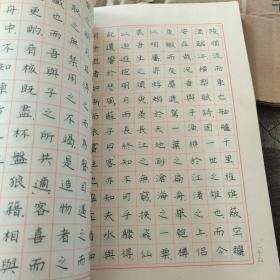 陵順流而東也舳艫千里旌旗蔽空釃
酒臨江橫槊賦詩固一世之雄也而今
安在哉況吾與子漁樵於江渚之上侶
魚蝦而友麋鹿駕一葉之扁舟舉匏樽
以相屬寄蜉蝣於天地渺滄海之一粟
哀吾生之須臾羨長江之無窮挾飛仙
以遨遊抱明月而長終知不可乎驟得
託遺響於悲風蘇子曰客亦知夫水與
取之無禁用之不竭是造物者之
藏也而吾與子之所共適客喜而
更酌肴核既盡杯盤狼籍相與
舟中不知